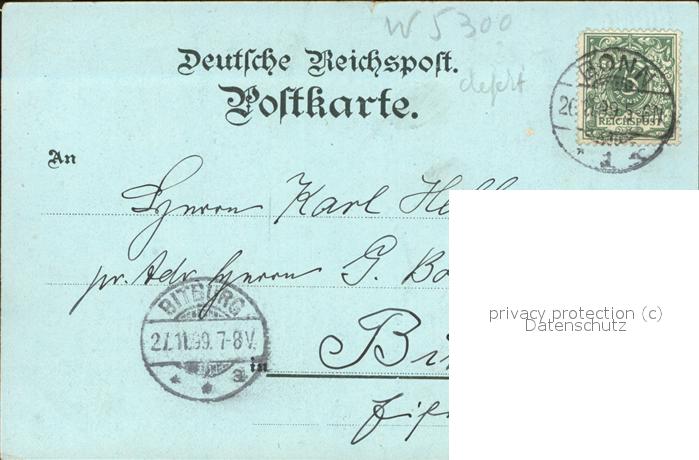 W 5300
Deutsche Reichspost.
Postkarte.
defekt
BONN
REICHSPOST
* 1 c
An
Herrn Karl
pr. Adr. Herrn G.
BITBURG
27.11.99. 7-8V.
* * a
in
privacy protection (c)
Datenschutz